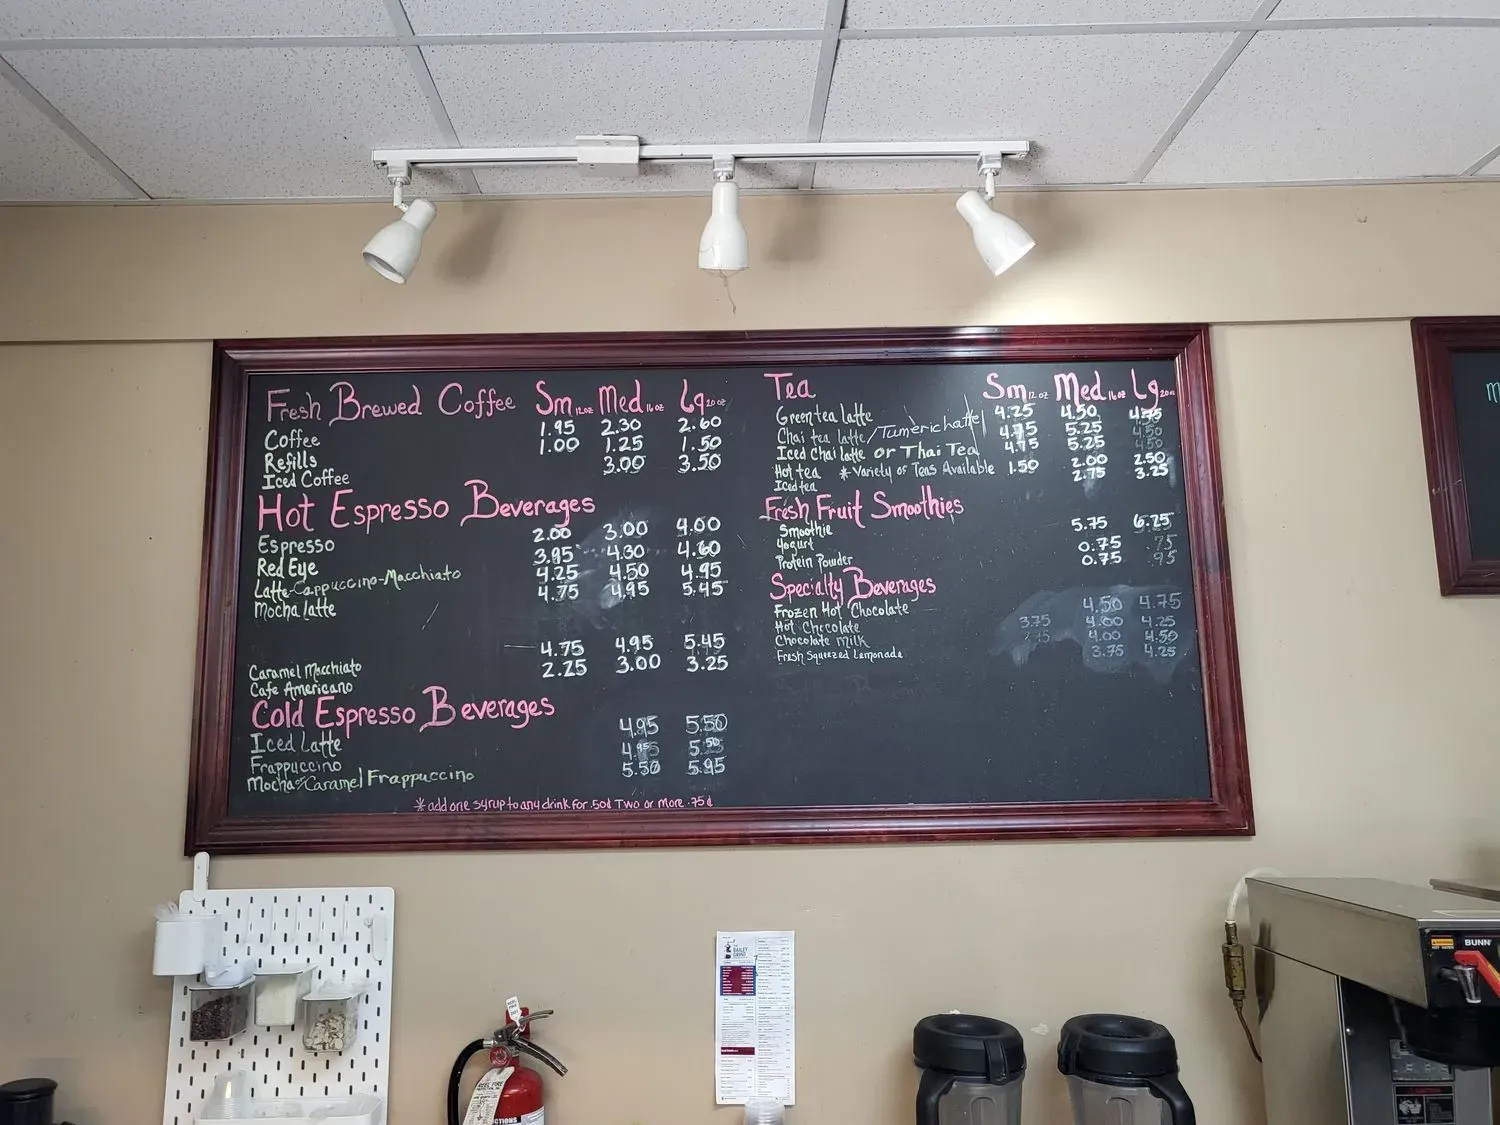 Fresh Brewed Coffee Sm 12 oz Med 16 oz Lg 20 oz
Coffee 1.95 2.30 2.60
Refills 1.00 1.25 1.50
Iced Coffee 3.00 3.50
Hot Espresso Beverages
Espresso 2.00 3.00 4.00
Red Eye 3.95 4.30 4.60
Latte-Cappuccino-Macchiato 4.25 4.50 4.95
Mocha latte 4.75 4.95 5.45
Caramel Macchiato 4.75 4.95 5.45
Cafe Americano 2.25 3.00 3.25
Cold Espresso Beverages
Iced Latte 4.95 5.50
Frappuccino 4.95 5.50
Mocha or Caramel Frappuccino 5.50 5.95
*add one syrup to any drink for .50¢ Two or more .75¢
Tea Sm 12 oz Med 16 oz Lg 20 oz
Green tea latte 4.25 4.50 4.75
Chai tea latte / Tumeric hatte 4.75 5.25
Iced Chai latte or Thai Tea 4.75 5.25
Hot tea *Variety of Teas Available 1.50 2.00 2.50
Iced tea 2.75 3.25
Fresh Fruit Smoothies
Smoothie 5.75 6.25
Yogurt 0.75 .75
Protein Powder 0.75 .95
Specialty Beverages
Frozen Hot Chocolate 4.50 4.75
Hot Chocolate 3.75 4.00 4.25
Chocolate Milk 4.00 4.50
Fresh Squeezed Lemonade 3.75 4.25
BAILEY
GRIND
BUNN